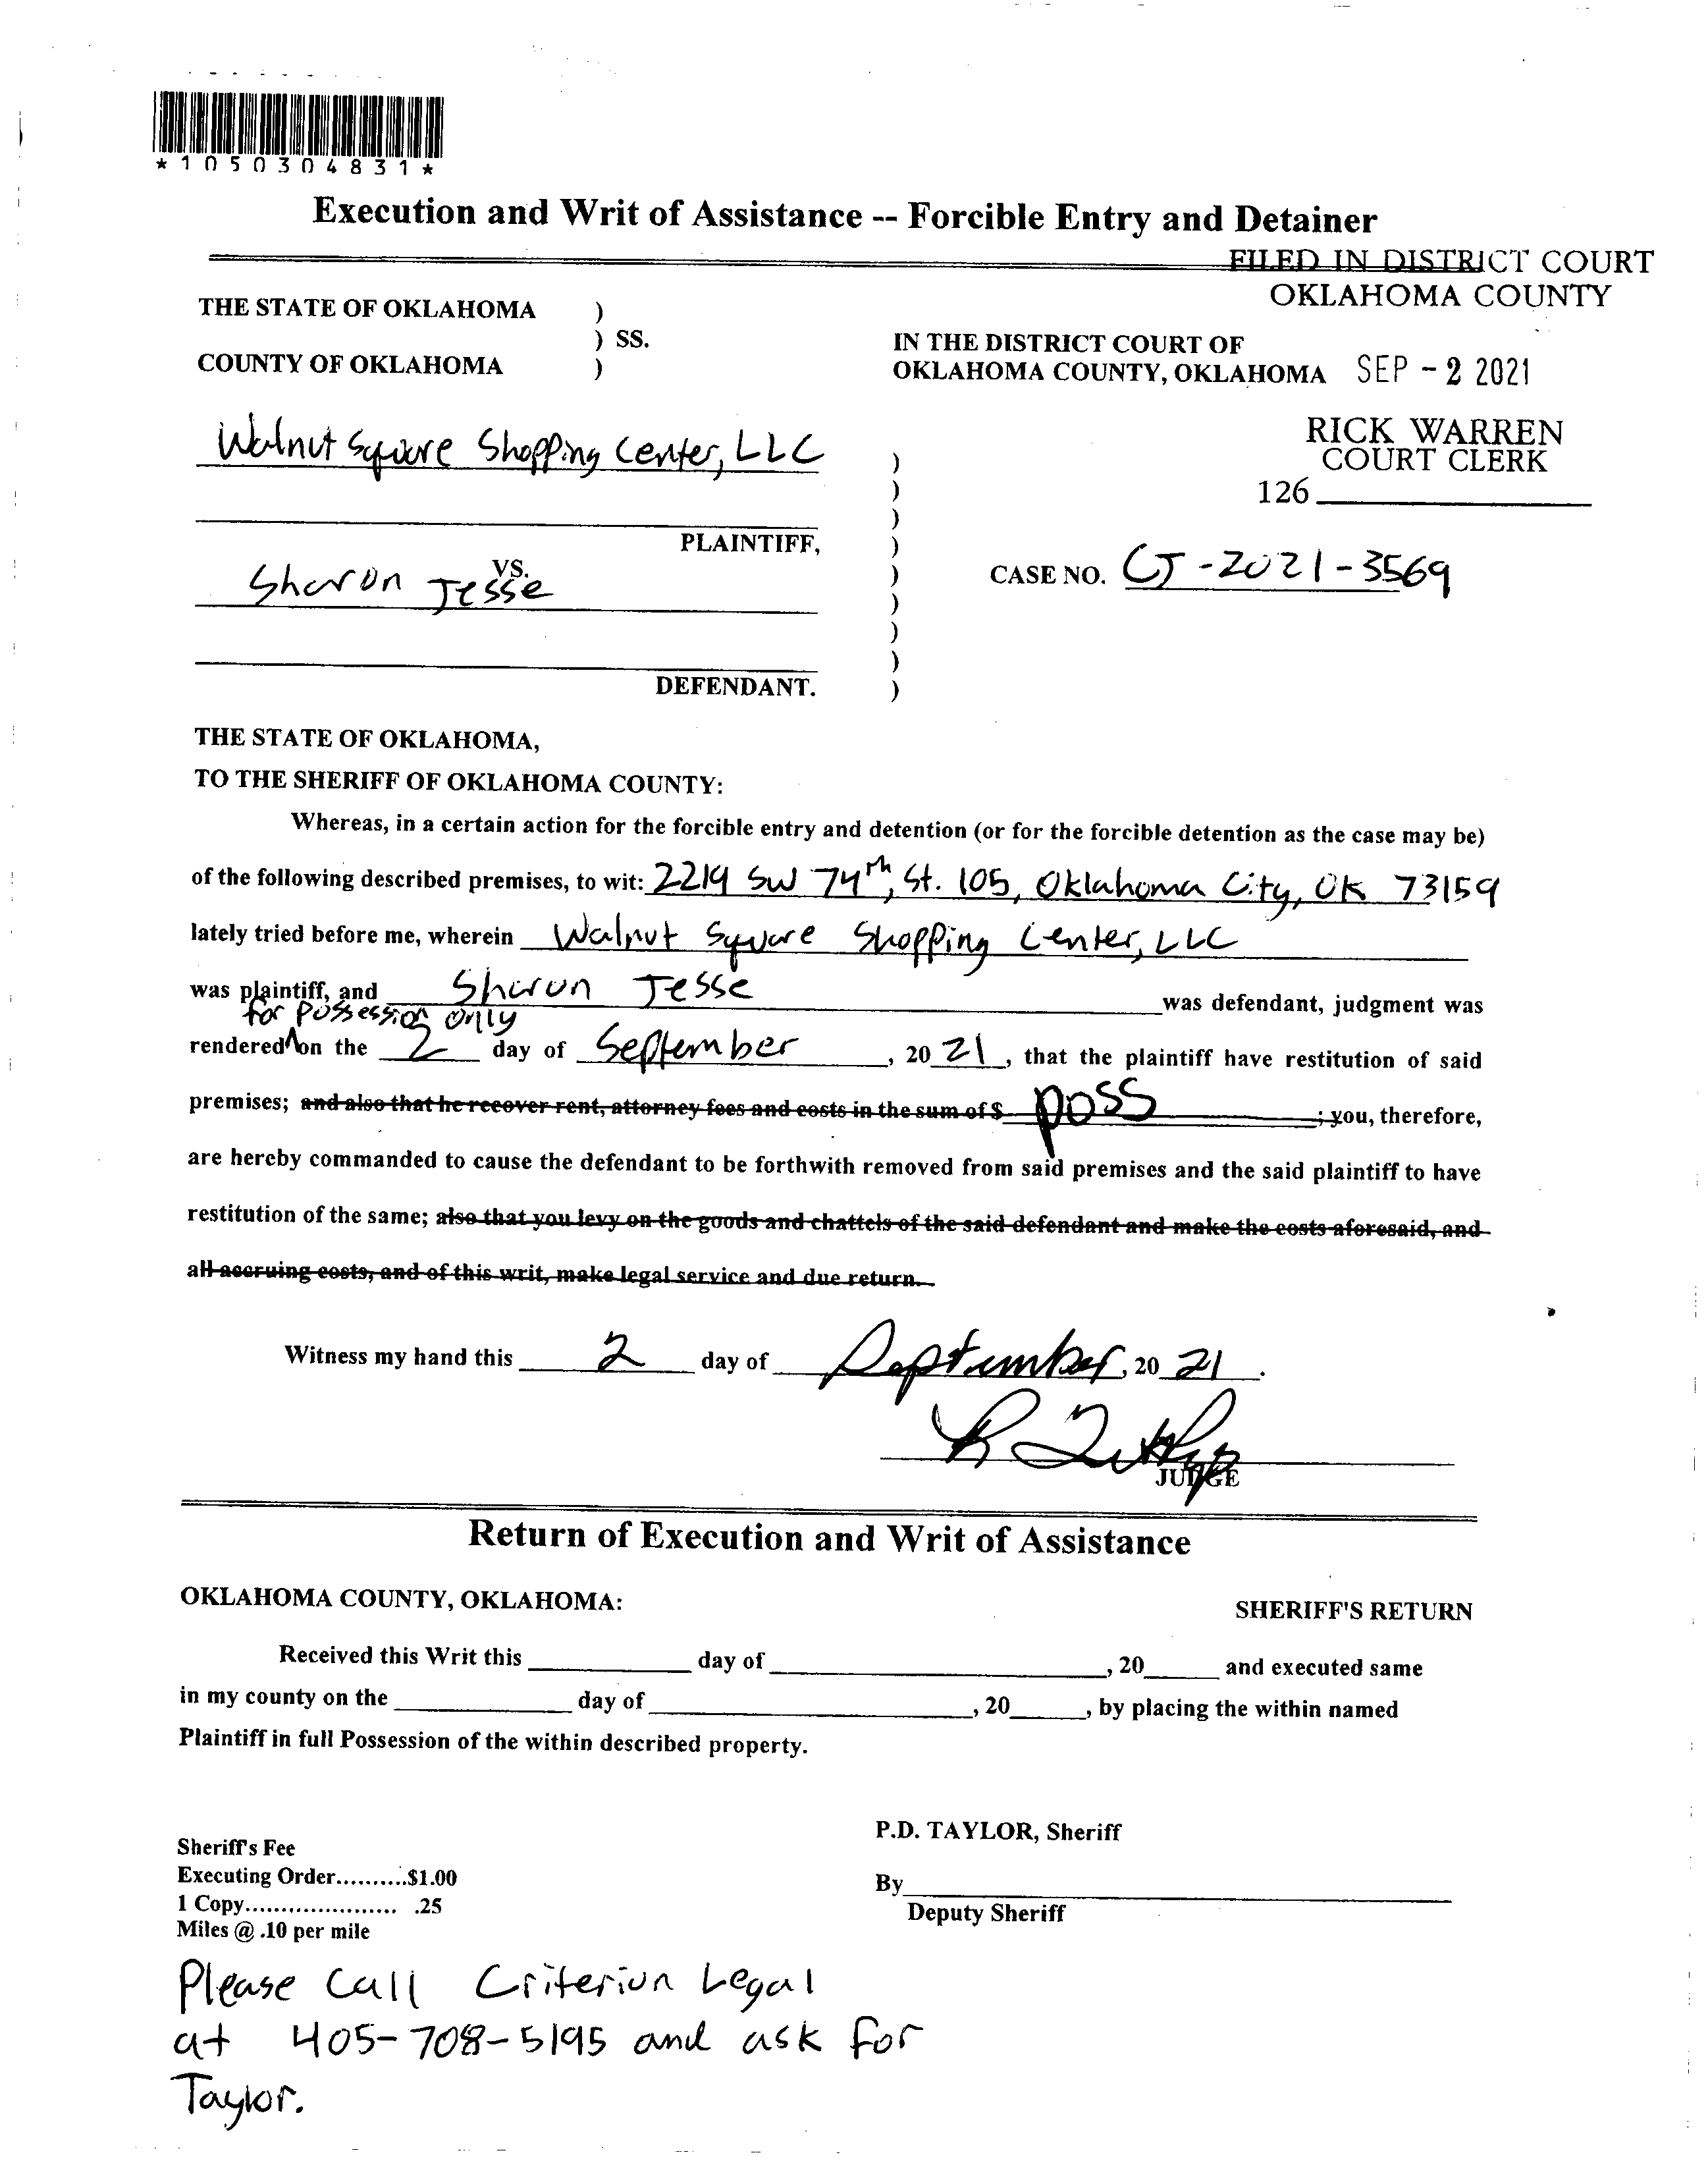 *1050304831*
Execution and Writ of Assistance -- Forcible Entry and Detainer
FILED IN DISTRICT COURT
OKLAHOMA COUNTY
THE STATE OF OKLAHOMA )
) SS.
COUNTY OF OKLAHOMA )
IN THE DISTRICT COURT OF
OKLAHOMA COUNTY, OKLAHOMA SEP - 2 2021
RICK WARREN
COURT CLERK
126
Walnut Square Shopping Center, LLC )
)
)
PLAINTIFF, )
VS. )
Sharon Jesse )
)
)
DEFENDANT. )
CASE NO. CJ-2021-3569
THE STATE OF OKLAHOMA,
TO THE SHERIFF OF OKLAHOMA COUNTY:
Whereas, in a certain action for the forcible entry and detention (or for the forcible detention as the case may be)
of the following described premises, to wit: 2219 SW 74th, St. 105, Oklahoma City, OK 73159
lately tried before me, wherein Walnut Square Shopping Center, LLC
was plaintiff, and Sharon Jesse was defendant, judgment was
for possession only
rendered on the 2 day of September, 2021, that the plaintiff have restitution of said
premises; and also that he recover rent, attorney fees and costs in the sum of $ poss ; you, therefore,
are hereby commanded to cause the defendant to be forthwith removed from said premises and the said plaintiff to have
restitution of the same; also that you levy on the goods and chattels of the said defendant and make the costs aforesaid, and
all accruing costs, and of this writ, make legal service and due return.
Witness my hand this 2 day of September, 2021.
JUDGE
Return of Execution and Writ of Assistance
OKLAHOMA COUNTY, OKLAHOMA:
SHERIFF'S RETURN
Received this Writ this ____ day of ____, 20____ and executed same
in my county on the ____ day of ____, 20____, by placing the within named
Plaintiff in full Possession of the within described property.
P.D. TAYLOR, Sheriff
Sheriff's Fee
Executing Order..........$1.00
1 Copy..................... .25
Miles @ .10 per mile
By
Deputy Sheriff
Please call Criterion Legal
at 405-708-5195 and ask for
Taylor.